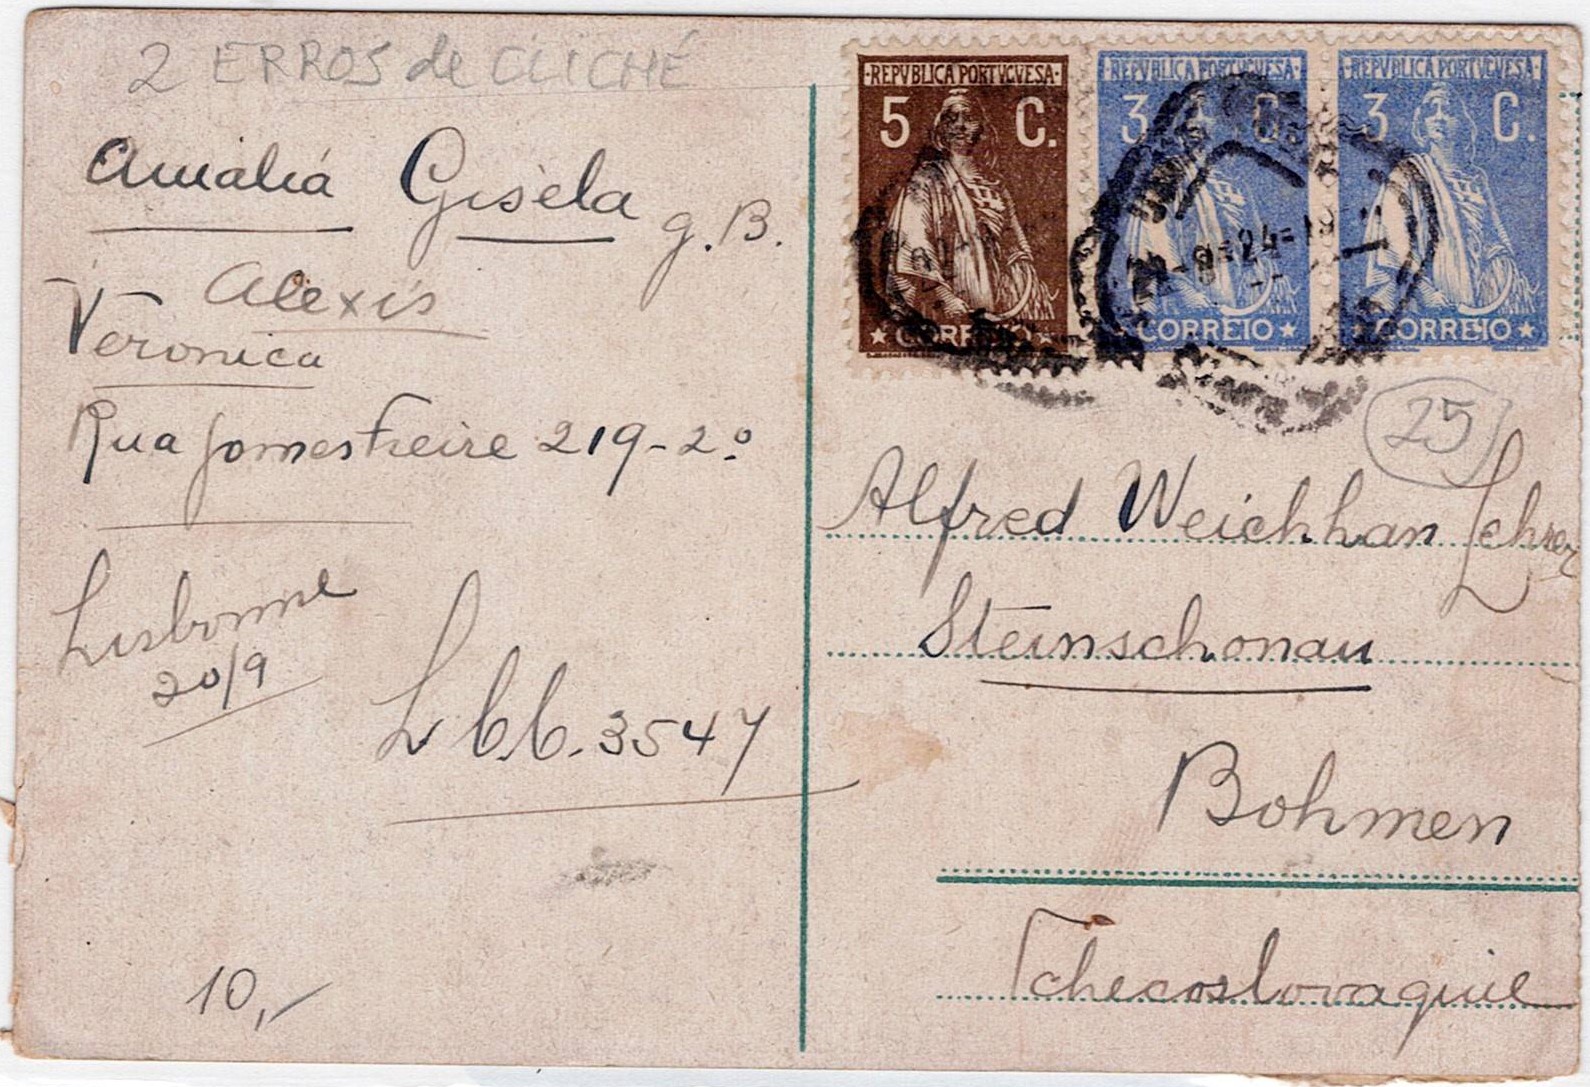 2 ERROS de CLICHÉ
Amaliá Gisela g.B.
Alexis
Veronica
Rua Gomes Freire 219-2º
Lisbonne
20/9
L bb. 3547
10,-
REPVBLICA PORTVGVESA
5 C.
CORREIO
REPVBLICA PORTVGVESA
3 C.
CORREIO
REPVBLICA PORTVGVESA
3 C.
CORREIO
25
Alfred Weichhan Lehrer
Steinschonau
Bohmen
Tchecoslovaquie